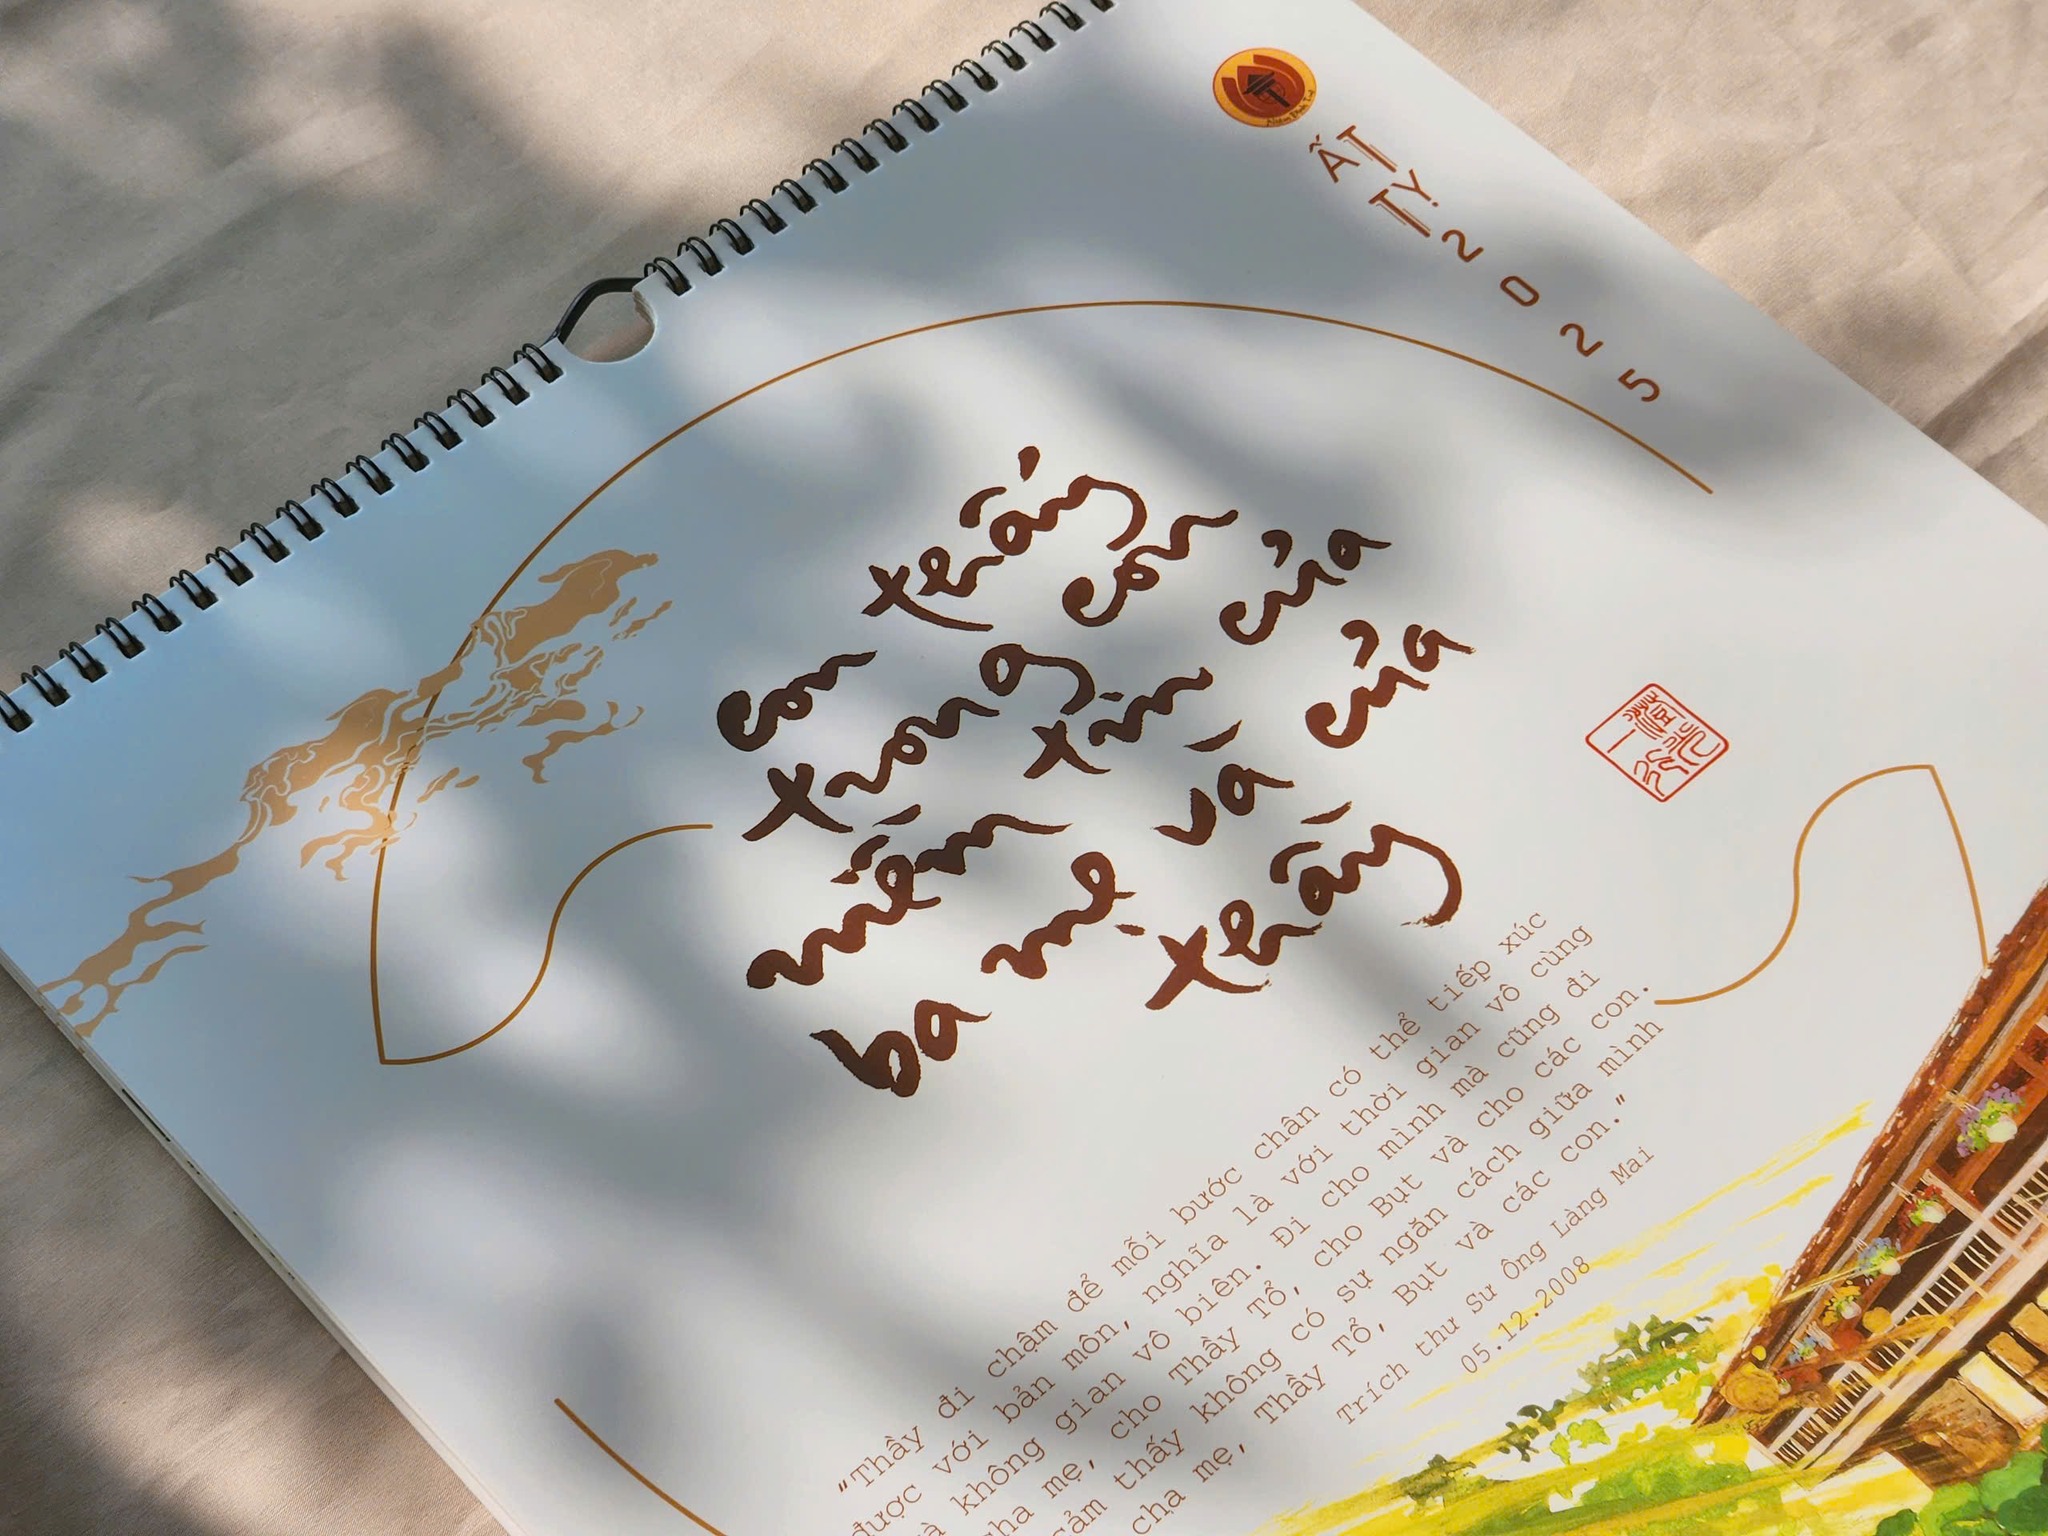 ẤT
TỴ
2025
con thấy
trong con
niềm tin của
ba mẹ và của
thầy
"Thầy đi chậm để mỗi bước chân có thể tiếp xúc
được với bản môn, nghĩa là với thời gian vô cùng
và không gian vô biên. Đi cho mình mà cũng đi
cha mẹ, cho Thầy Tổ, cho Bụt và cho các con.
cảm thấy không có sự ngăn cách giữa mình
cha mẹ, Thầy Tổ, Bụt và các con."
Trích thư Sư Ông Làng Mai
05.12.2008